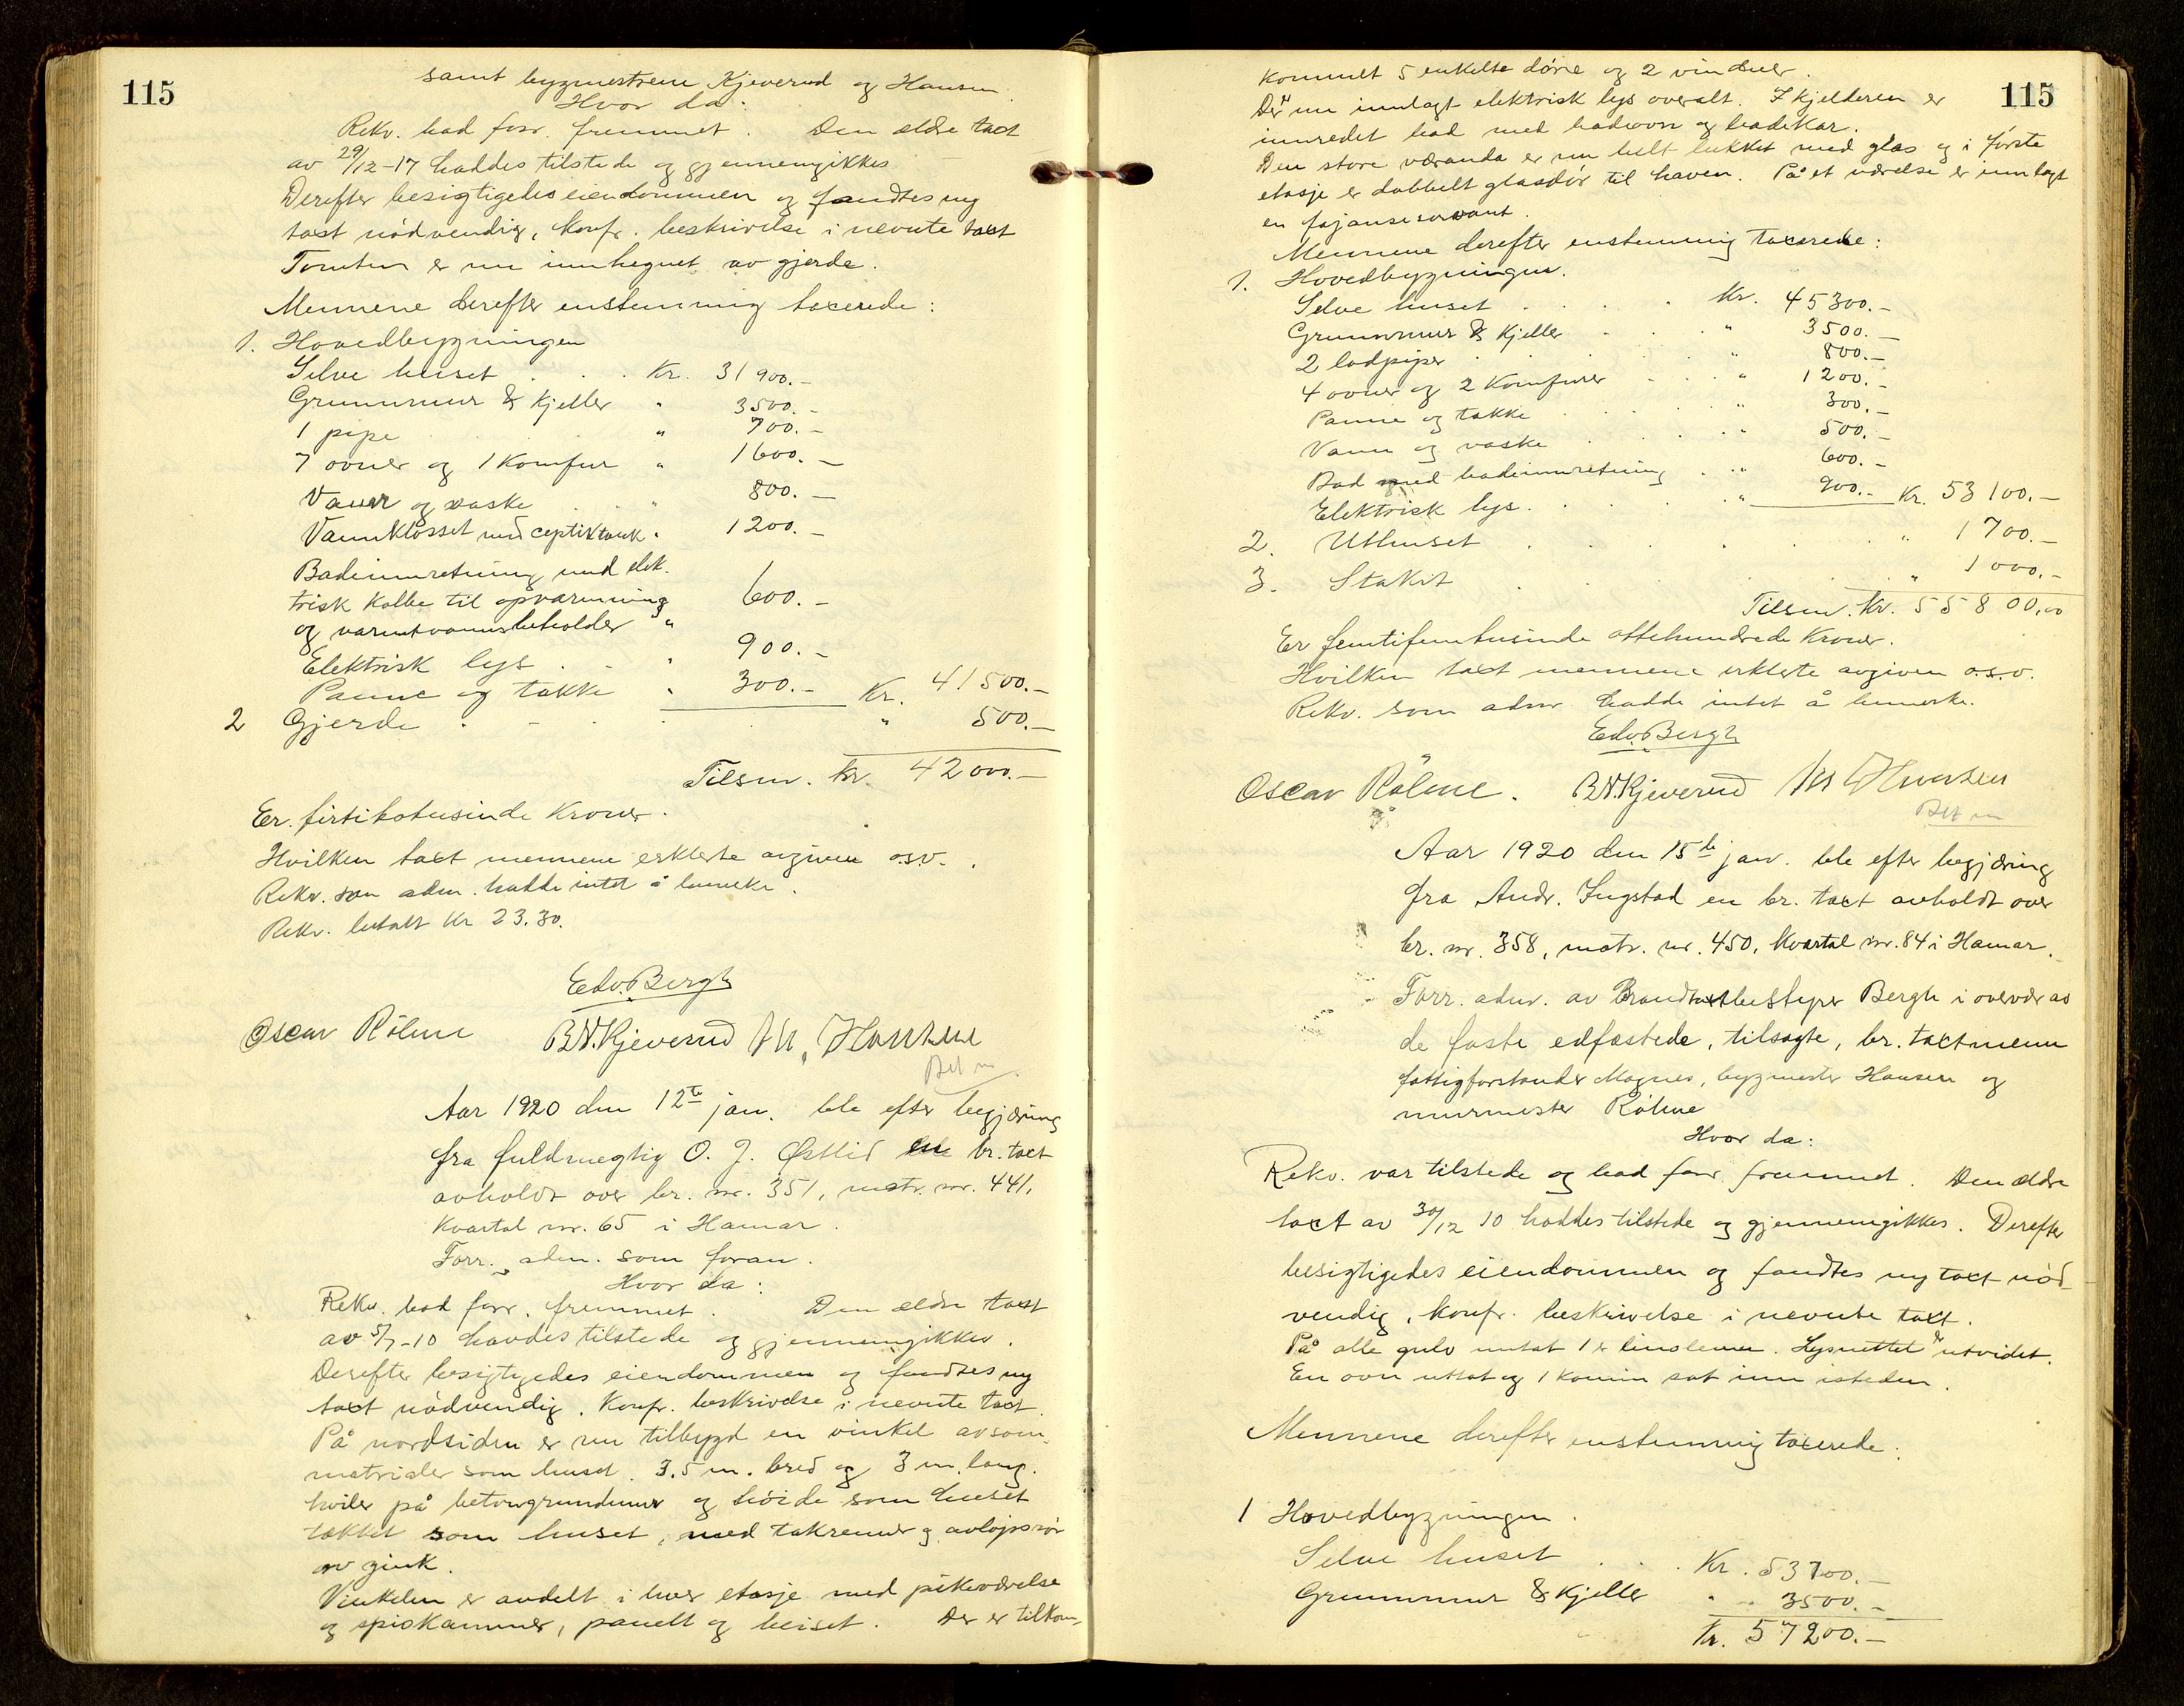 115
samt bygmestrene Kjeverud og Hansen.
Hvor da:
Rekv. bad forr. fremmet. Den ældre taxt
av 29/12-17 haddes tilstede og gjennemgikkes
Derefter besigtigedes eiendommen og fandtes ny
taxt nödvendig, konfr. beskrivelse i nevnte taxt
Tomten er nu innhegnet av gjerde.
Mennene derefter enstemmig taxerede:
1. Hovedbygningen
Selve huset . . . Kr. 31900.-
Grunnmur & Kjeller " 3500.-
1 pipe " 700.-
7 ovner og 1 Komfur " 1600.-
Vann og vaske " 800.-
Vannklosset med ceptiktank " 1200.-
Badeinnretning med elek-
trisk Kolbe til opvarmning
og varmtvannsbeholder " 600.-
Elektrisk lys . . " 900.-
Panne og takke " 300.- Kr. 41500.-
2 Gjerde . - . . " 500.-
Tilsm. Kr. 42000.-
Er firtitotusinde Kroner.
Hvilken taxt mennene erklerte avgiven o.s.v.
Rekv. som adm. hadde intet å bemerke.
Rekv. betalt Kr 23.30.
Edv. Bergh
Oscar Rölme B.N.Kjeverud M. Hansen
Bet m
Aar 1920 den 12te jan. ble efter begjæring
fra fuldmegtig O. J. Østlid en br. taxt
avholdt over br. nr. 351, matr. nr. 441,
Kvartal nr. 65 i Hamar.
Forr. adm. som foran.
Hvor da:
Rekv. bad forr. fremmet. Den ældre taxt
av 5/7-10 havdes tilstede og gjennemgikkes.
Derefter besigtigedes eiendommen og fandtes ny
taxt nödvendig. Konfr. beskrivelse i nevnte taxt.
På nordsiden er nu tilbygd en vinkel av sam.
matrialer som huset. 3.5 m. bred og 3 m. lang.
hviler på betongrundmur og höide som huset
taktet som huset, med takrenner og avlöpsrör
av zink.
Vinkelen er avdelt i hver etasje med pikeværelse
og spiskammer, panelt og beiset. Der er tilkom-
115
kommet 5 enkelte döre og 2 vinduer.
Der er nu innlagt elektrisk lys overalt. I kjelderen er
innredet bad med badeovn og badekar.
Den store væranda er nu helt lukket med glas og i förste
etasje er dobbelt glasdör til haven. På et værelse er innlagt
en fajanseservant.
Mennene derefter enstemmig taxerede:
1. Hovedbygningen.
Selve huset . . . . Kr. 45300.-
Grunnmur & Kjeller . . " 3500.-
2 ladpiper . . . " 800.-
4 ovner og 2 Komfurer . . " 1200.-
Panne og takke . . . " 300.-
Vann og vaske . . . " 500.-
Bad med badeinnretning . " 600.-
Elektrisk lys. . . . " 900.- Kr. 53100.-
2. Uthuset . . . . . " 1700.-
3. Stakit . . . " 1000.-
Tilsm. Kr. 55800,00
Er femtifemtusinde ottehundrede Kroner.
Hvilken taxt mennene erklerte avgiven o.s.v.
Rekv. som adm hadde intet å bemerke.
Edv. Bergh
Oscar Rölme. B.N.Kjeverud M Hansen
Bet m
Aar 1920 den 15de jan. ble efter begjæring
fra Andr. Ingstad en br. taxt avholdt over
br. nr. 358, matr. nr. 450, Kvartal nr. 84 i Hamar.
Forr. adm. av Brandtaxtbestyrer Bergh i overvær av
de faste edfæstede, tilsagte, br. taxtmenn
fattigforstander Magnes, bygmester Hansen og
murmester Rölme
Hvor da:
Rekv. var tilstede og bad forr. fremmet. Den ældre
taxt av 30/12 10 haddes tilstede og gjennemgikkes. Derefter
besigtigedes eiendommen og fandtes ny taxt nöd-
vendig, konfr. beskrivelse i nevnte taxt.
På alle gulv untat 1 er linoleum. Lysnettet er utvidet.
En ovn uttat og 1 Kamin sat inn isteden.
Mennene derefter enstemmig taxerede.
1 Hovedbygningen.
Selve huset . . . Kr. 53700.-
Grunnmur & Kjeller " 3500.-
Kr. 57200.-